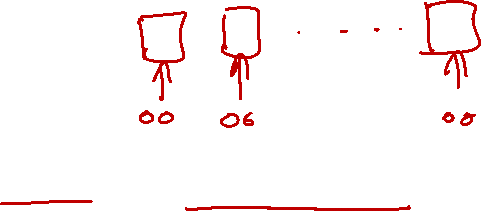 00 06 .... 00